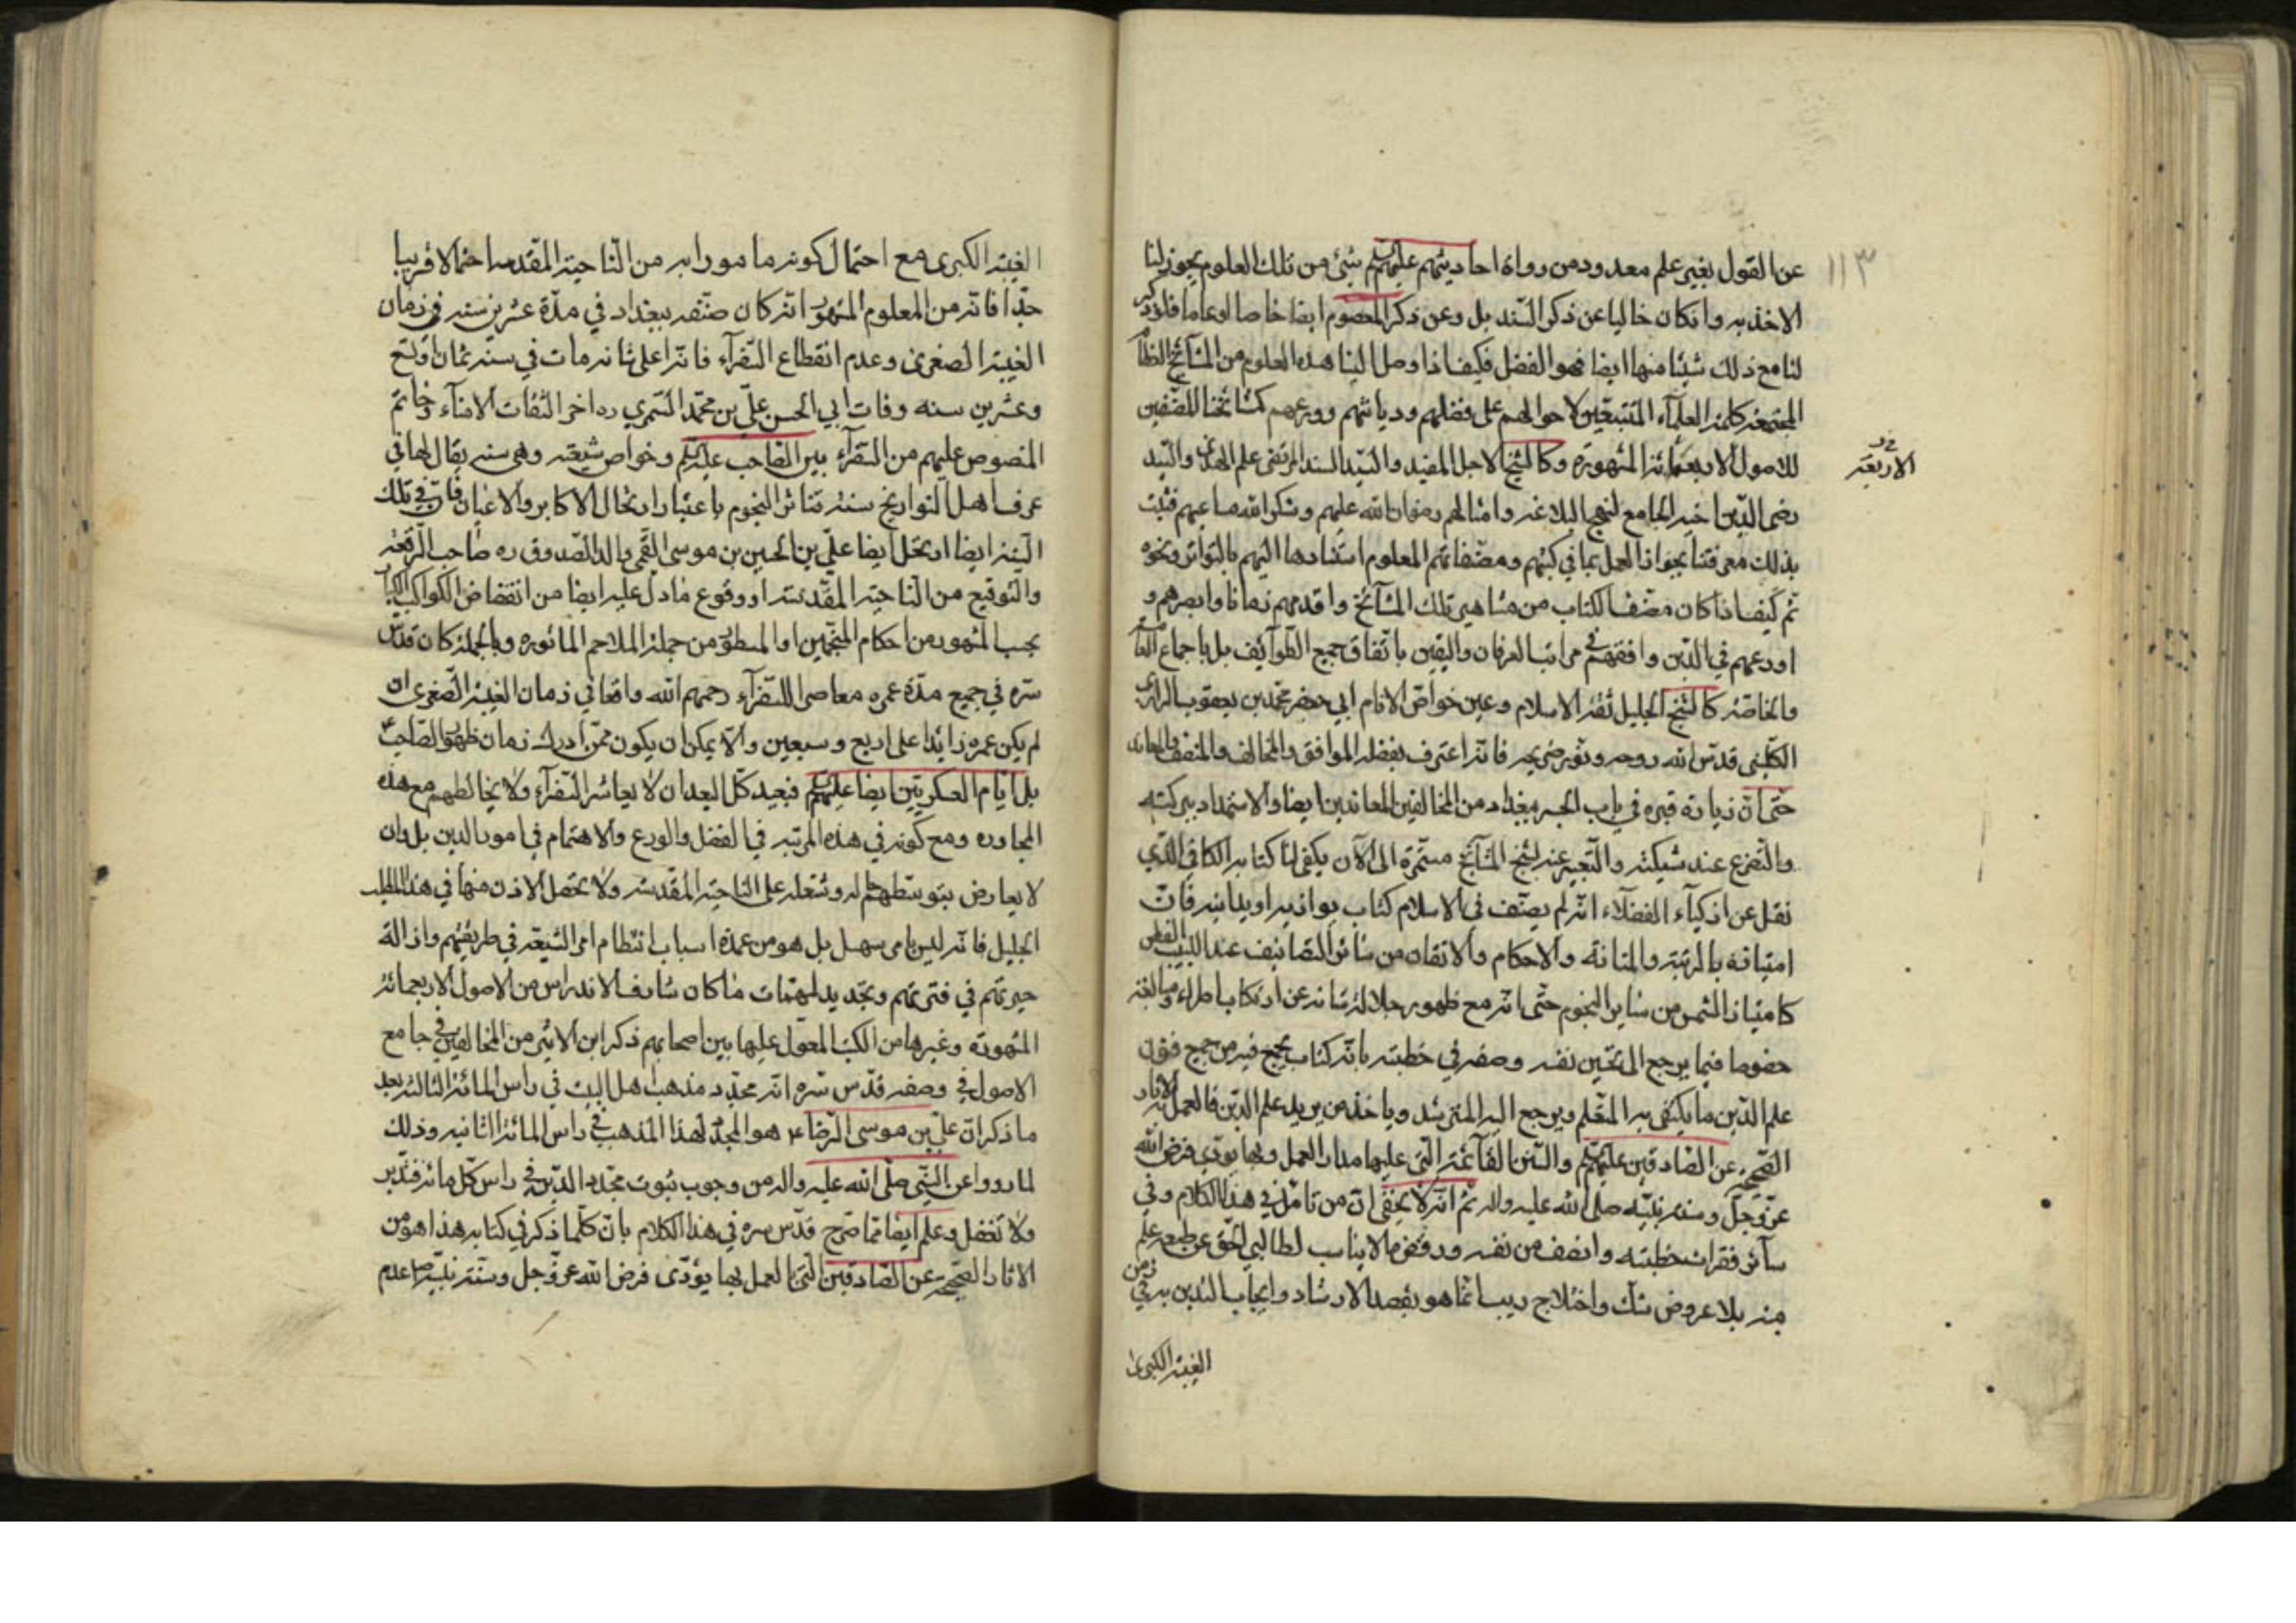 ١١٣
عن القول بغير علم معدود من رواة احاديثهم عليهم شيئ من تلك العلوم يجوز لنا
الاخذ به وان كان خاليا عن ذكر السند بل وعن ذكر المعصوم ايضا خاصا او عاما فلو ذكر
لنا مع ذلك شيئا منها ايضا فهو الفضل فكيف اذا وصل الينا هذه العلوم من المشآئخ العظام
المجتمعة كلمة العلمآء المتتبعين لاحوالهم على فضلهم وديانتهم وورعهم كمشائخنا المصنفين
للاصول الاربعمائة المشهورة وكالشيخ الاجل المفيد والسيد السند المرتضى علم الهدى والسيد
الاربعة
رضى الدين اخيه الجامع لنهج البلاغه وامثالهم رضوان الله عليهم وشكر الله مساعيهم فثبت
بذلك معرفتنا بجواز العمل بما في كتبهم ومصنفاتهم المعلوم استنادها اليهم بالتواتر ونحوه
ثم كيف اذا كان مصنف الكتاب من مشاهير تلك المشآئخ واقدمهم زمانا وابصرهم و
اورعهم في الدين وافقههم في مراتب العرفان واليقين باتفاق جميع الطوآئف بل باجماع العامة
والخاصة كالشيخ الجليل ثقة الاسلام وعين خواص الانام ابي جعفر محمد بن يعقوب الرازى
الكلينى قدس الله روحه ونور ضريحه فانه اعترف بفضله الموافق والمخالف والمنصف والمعاند
حتى ان زيارة قبره في باب الجسر ببغداد من المخالفين المعاندين ايضا والاستمداد ببركته
والتضرع عند والتعبير عنه بشيخ المشآئخ مستمرة الى الآن يكفى لنا كتابه الكافى الذي
نقل عن اذكيآء الفضلآء انه لم يصنف فى الاسلام كتاب يوازيه او يدانيه فان
امتيازه بالرتبة والمتانة والاحكام والاتقان من سائر التصانيف عند اللبيب الفطن
كامتياز الشمس من سائر النجوم حتى انه مع ظهور جلالة شانه عن ارتكاب اطراء ومبالغة
خصوصا فيما يرجع الى تحسين نفسه وصفه في خطبته بانه كتاب يجمع فيه من جميع فنون
علم الدين ما يكتفى به المتعلم ويرجع اليه المسترشد وياخذ من يريد علم الدين والعمل به بالاثار
الصحيحة عن الصادقين عليهم والسنن القآئمة التى عليها مدار العمل وبها يؤدى فرض الله
عز وجل وسنة نبيه صلى الله عليه واله ثم انه لا يخفى ان من تامل في هذا الكلام وفي
سآئر فقرات خطبته وانصف من نفسه ورفض ما لا يناسب لطالبي الحق عن طبعه علم
منه بلا عروض شك واختلاج ريب انما هو بقصد الارشاد وايجاب التدين به في زمن
الغيبة الكبرى
الغيبة الكبرى مع احتمال كونه مامورا به من الناحية المقدسة احتمالا قريبا
جدا فانه من المعلوم المشهور انه كان صنفه ببغداد في مدة عشرين سنه في زمان
الغيبة الصغرى وعدم انقطاع السفرآء فانه اعلى شانه مات في سنة ثمان او تسع
وعشرين سنه وفات ابي الحسن علي بن محمد السمري ره اخر الثقات الامنآء وخاتم
المنصوص عليهم من السفرآء بين الصاحب عليه وخواص شيعته وهى سنة يقال لها في
عرف اهل التواريخ سنة تناثر النجوم باعتبار ارتحال الاكابر والاعيان فان في تلك
السنة ايضا ارتحل ايضا علي بن الحسين بن موسى القمى والد الصدوق ره صاحب الرقعة
والتوقيع من الناحية المقدسة او وقوع ما دل عليه ايضا من انقضاض الكواكب
بحسب المشهور من احكام المنجمين او المسطور من جملة الملاحم الماثورة وبالجملة كان قدس
سره في جميع مدة عمره معاصرا للسفرآء رحمهم الله واقعا في زمان الغيبة الصغرى ان
لم يكن عمره زائدا على اربع وسبعين والا يمكن ان يكون ممن ادرك زمان ظهور الصاحب
بل ايام العسكريين ايضا عليهم فبعيد كل البعد ان لا يعاشر السفرآء ولا يخالطهم مع هذه
المجاورة ومع كونه في هذه المرتبة في الفضل والورع والاهتمام في امور الدين بل وان
لا يعارض بتوسطهم وشغله على الناحية المقدسة ولا يحصل الاذن منها في هذا المطلب
الجليل فانه ليس بامر سهل بل هو من عمدة اسباب انتظام امر الشيعة في طريقتهم وازالة
حيرتهم في فترتهم وتجديد لمهمات ما كان شارف الاندراس من الاصول الاربعمائة
المشهورة وغيرها من الكتب المعول عليها بين اصحابهم ذكر ابن الاثير من المخالفين في جامع
الاصول في وصفه قدس سره انه مجدد مذهب اهل البيت في راس المائة الثالثة بعد
ما ذكر ان علي بن موسى الرضا ع هو المجدد لهذا المذهب في راس المائة الثانية وذلك
لما رووا عن النبي صلى الله عليه واله من وجوب ثبوت مجدد الدين في راس كل مائة فتدبر
ولا تغفل وعلم ايضا مما صرح قدس سره في هذا الكلام بان كلما ذكر في كتابه هذا هو من
الاثار الصحيحة عن الصادقين التى العمل بها يؤدى فرض الله عز وجل وسنة نبيه ص عدم